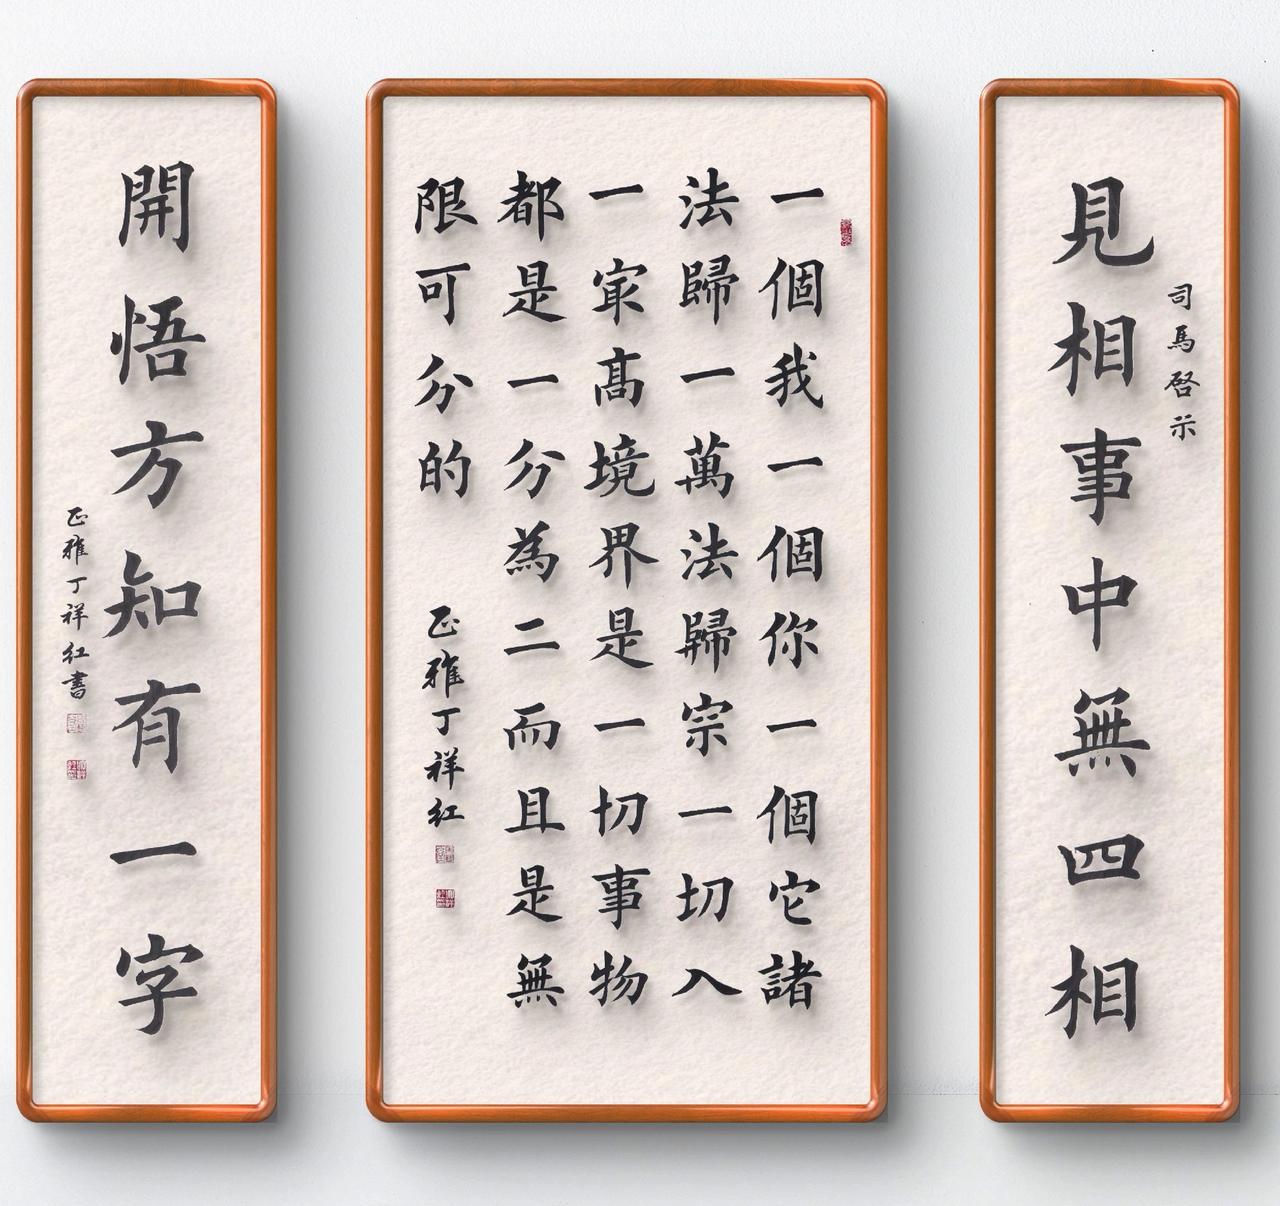 司馬啓示
見相事中無四相
一個我一個你一個它諸
法歸一萬法歸宗一切入
一冣髙境界是一切事物
都是一分為二而且是無
限可分的
正雅丁祥紅
開悟方知有一字
正雅丁祥紅書